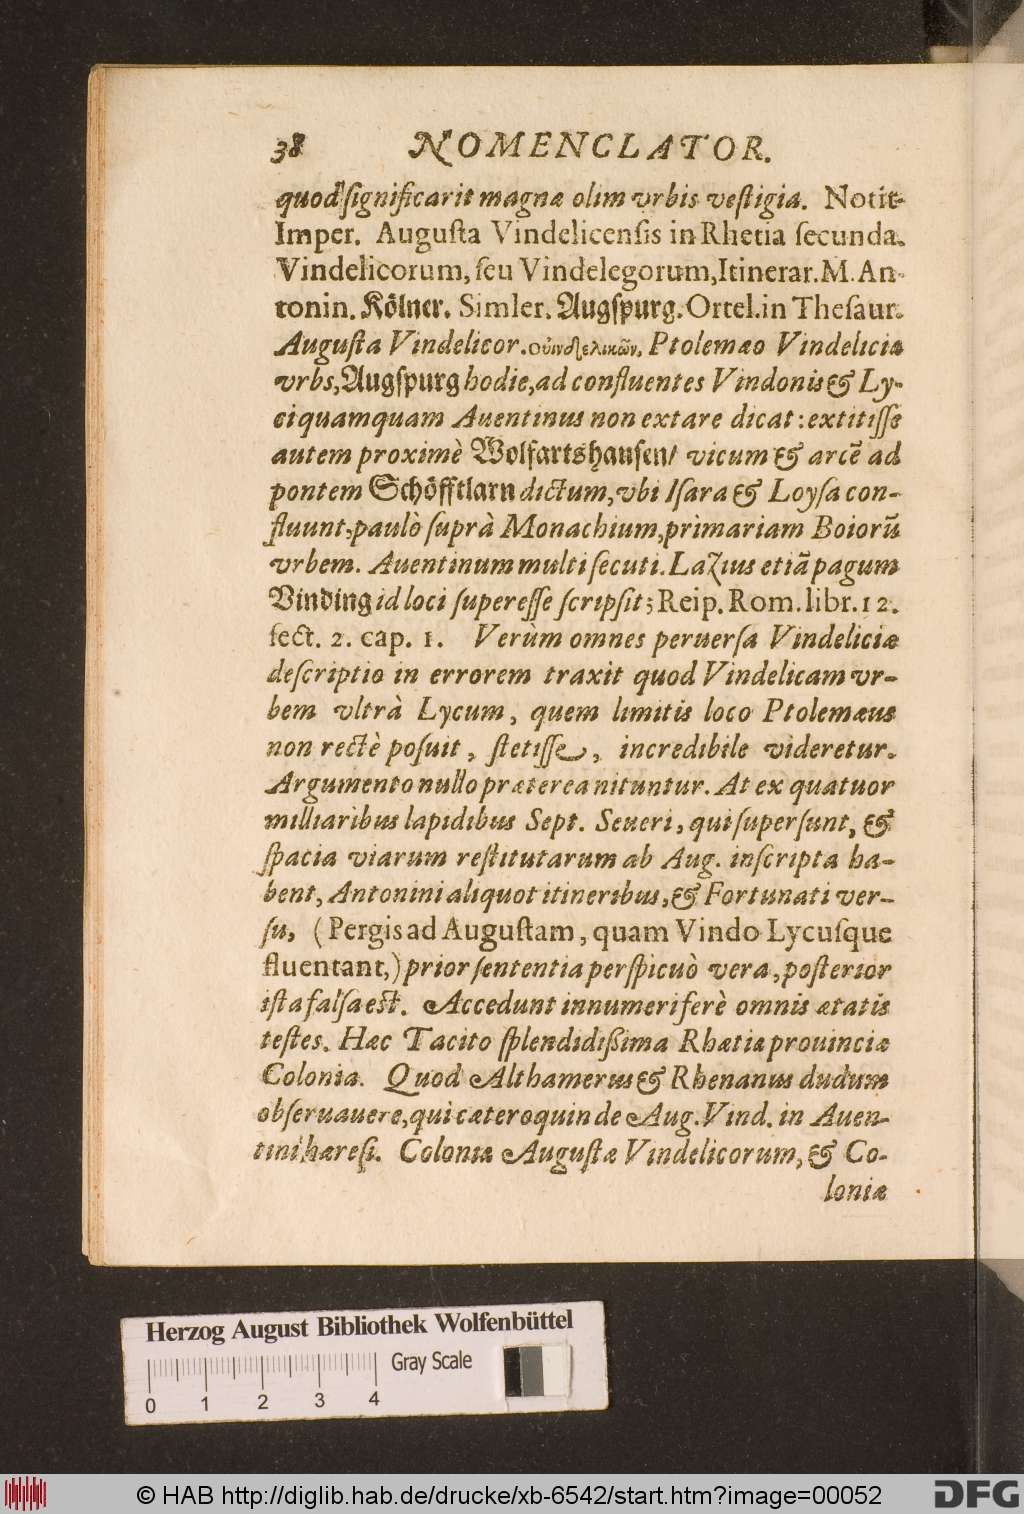 38 NOMENCLATOR.
quod ſignificarit magnæ olim vrbis veſtigia. Notit-
Imper. Auguſta Vindelicenſis in Rhetia ſecunda.
Vindelicorum, ſeu Vindelegorum, Itinerar. M. An-
tonin. Kölner. Simler. Augſpurg. Ortel. in Theſaur.
Auguſta Vindelicor. Ptolemæo Vindeliciæ
vrbs, Augſpurg hodie, ad confluentes Vindonis & Ly-
ci quamquam Auentinus non extare dicat: extitiſſe
autem proximè Wolfartshauſen/ vicum & arcē ad
pontem Schöfftlarn dictum, vbi Iſara & Loyſa con-
fluunt, paulò ſuprà Monachium, primariam Boiorū
vrbem. Auentinum multi ſecuti. Lazius etiā pagum
Vinding id loci ſupereſſe ſcripſit; Reip. Rom. libr. 12.
ſect. 2. cap. 1. Verùm omnes peruerſa Vindeliciæ
deſcriptio in errorem traxit quod Vindelicam vr-
bem vltrà Lycum, quem limitis loco Ptolemæus
non rectè poſuit, ſtetiſſe, incredibile videretur.
Argumento nullo præterea nituntur. At ex quatuor
milliaribus lapidibus Sept. Seueri, qui ſuperſunt, &
ſpacia viarum reſtitutarum ab Aug. inſcripta ha-
bent, Antonini aliquot itineribus, & Fortunati ver-
ſu, (Pergis ad Auguſtam, quam Vindo Lycuſque
fluentant,) prior ſententia perſpicuò vera, poſterior
iſta falſa eſt. Accedunt innumeri ferè omnis ætatis
teſtes. Hæc Tacito ſplendidißima Rhætiæ prouinciæ
Colonia. Quod Althamerus & Rhenanus dudum
obſeruauere, qui cæteroquin de Aug. Vind. in Auen-
tini hæreſi. Coloniæ Auguſtæ Vindelicorum, & Co-
loniæ
Herzog August Bibliothek Wolfenbüttel
Gray Scale
0 1 2 3 4
© HAB http://diglib.hab.de/drucke/xb-6542/start.htm?image=00052
DFG